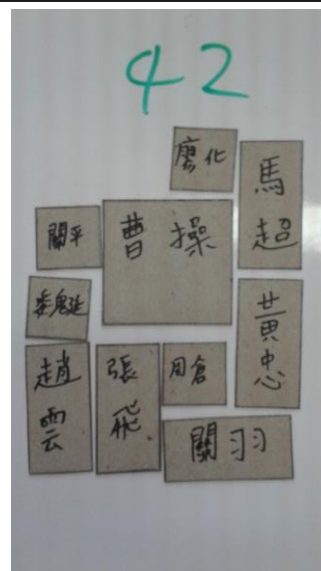 42
廖化
馬超
關平
曹操
魏延
黃忠
趙雲
張飛
周倉
關羽